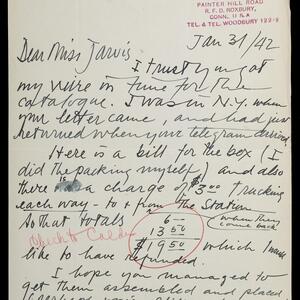 PAINTER HILL ROAD
R. F. D. ROXBURY,
CONN. U S A
TEL. & TEL. WOODBURY 122-2
Jan 31/42
Dear Miss Jarvis
I trust you got
my wire in time for the
catalogue. I was in N.Y. when
your letter came, and had just
returned when your telegram arrived
Here is a bill for the box (I
did the packing myself) and also
there is a charge of $3.00 Trucking
each way - to & from the Station
So that totals 6 —
13 50
$19 50
(when they
come back)
which I would
Check to Calder
like to have refunded.
I hope you managed to
get them assembled and placed